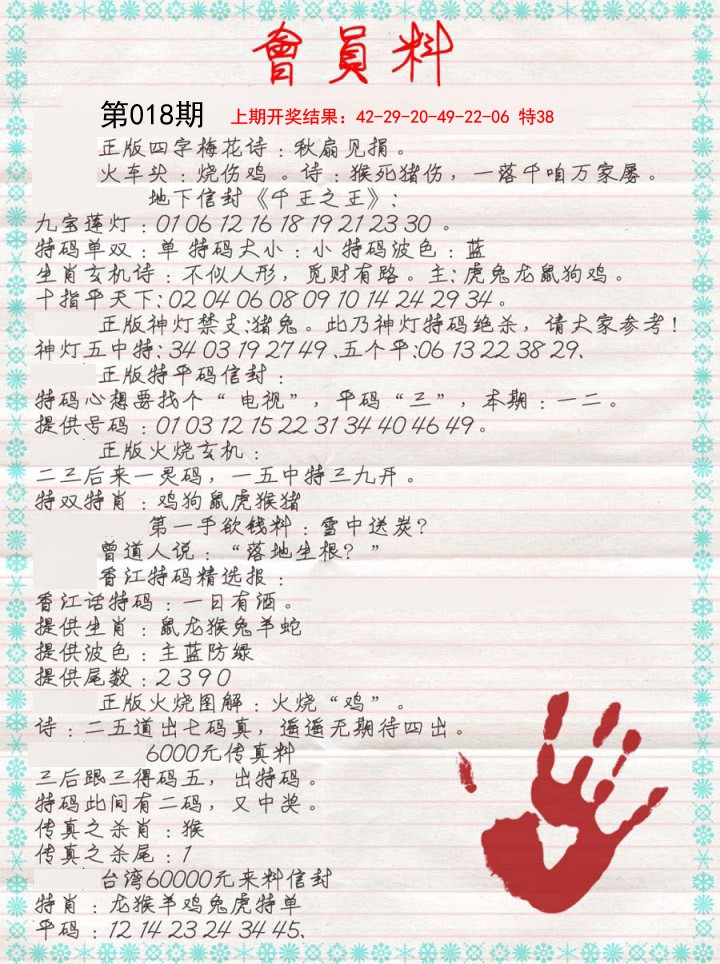 會員料
第018期 上期开奖结果：42-29-20-49-22-06 特38
正版四字梅花诗：秋扇见捐。
火车头：烧伤鸡。诗：猴死猪伤，一落千咱万家屡。
地下信封《千王之王》：
九宝莲灯：01 06 12 16 18 19 21 23 30 。
特码单双：单 特码大小：小 特码波色：蓝
生肖玄机诗：不似人形，觅财有路。主：虎兔龙鼠狗鸡。
十指平天下：02 04 06 08 09 10 14 24 29 34。
正版神灯禁支:猪兔。此乃神灯特码绝杀，请大家参考！
神灯五中特：34 03 19 27 49 .五个平:06 13 22 38 29.
正版特平码信封：
特码心想要找个“电视”，平码“三”，本期：一二。
提供号码：01 03 12 15 22 31 34 40 46 49。
正版火烧玄机：
二三后来一灵码，一五中特三九开。
特双特肖：鸡狗鼠虎猴猪
第一手欲钱料：雪中送炭？
曾道人说：“落地生根？”
香江特码精选报：
香江话特码：一日有酒。
提供生肖：鼠龙猴兔羊蛇
提供波色：主蓝防绿
提供尾数：2 3 9 0
正版火烧图解：火烧“鸡”。
诗：二五道出七码真，遥遥无期待四出。
6000元传真料
三后跟三得码五，出特码。
特码此间有二码，又中奖。
传真之杀肖：猴
传真之杀尾：1
台湾60000元来料信封
特肖：龙猴羊鸡兔虎特单
平码：12 14 23 24 34 45.